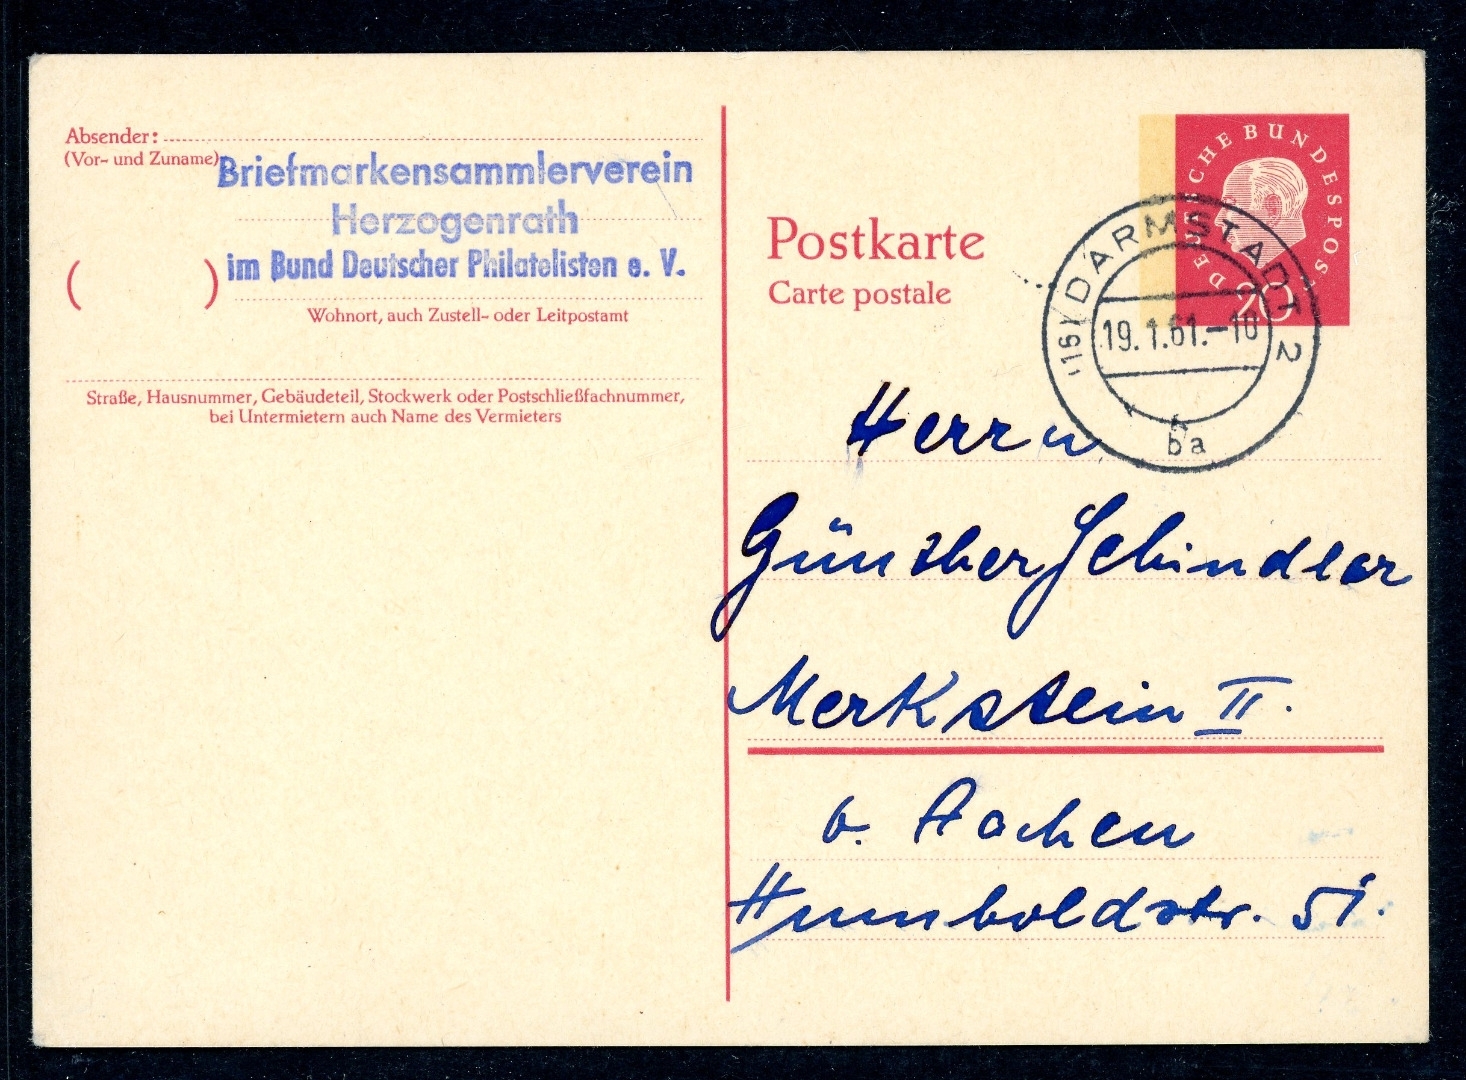 Absender:
(Vor- und Zuname)
Briefmarkensammlerverein
Herzogenrath
im Bund Deutscher Philatelisten e. V.
( )
Wohnort, auch Zustell- oder Leitpostamt
Straße, Hausnummer, Gebäudeteil, Stockwerk oder Postschließfachnummer,
bei Untermietern auch Name des Vermieters
Postkarte
Carte postale
DEUTSCHE BUNDESPOST
20
(16) DARMSTADT 2
19.1.61.-10
ba
Herrn
Günther Schindler
Merkstein II.
b. Aachen
Humboldstr. 51.